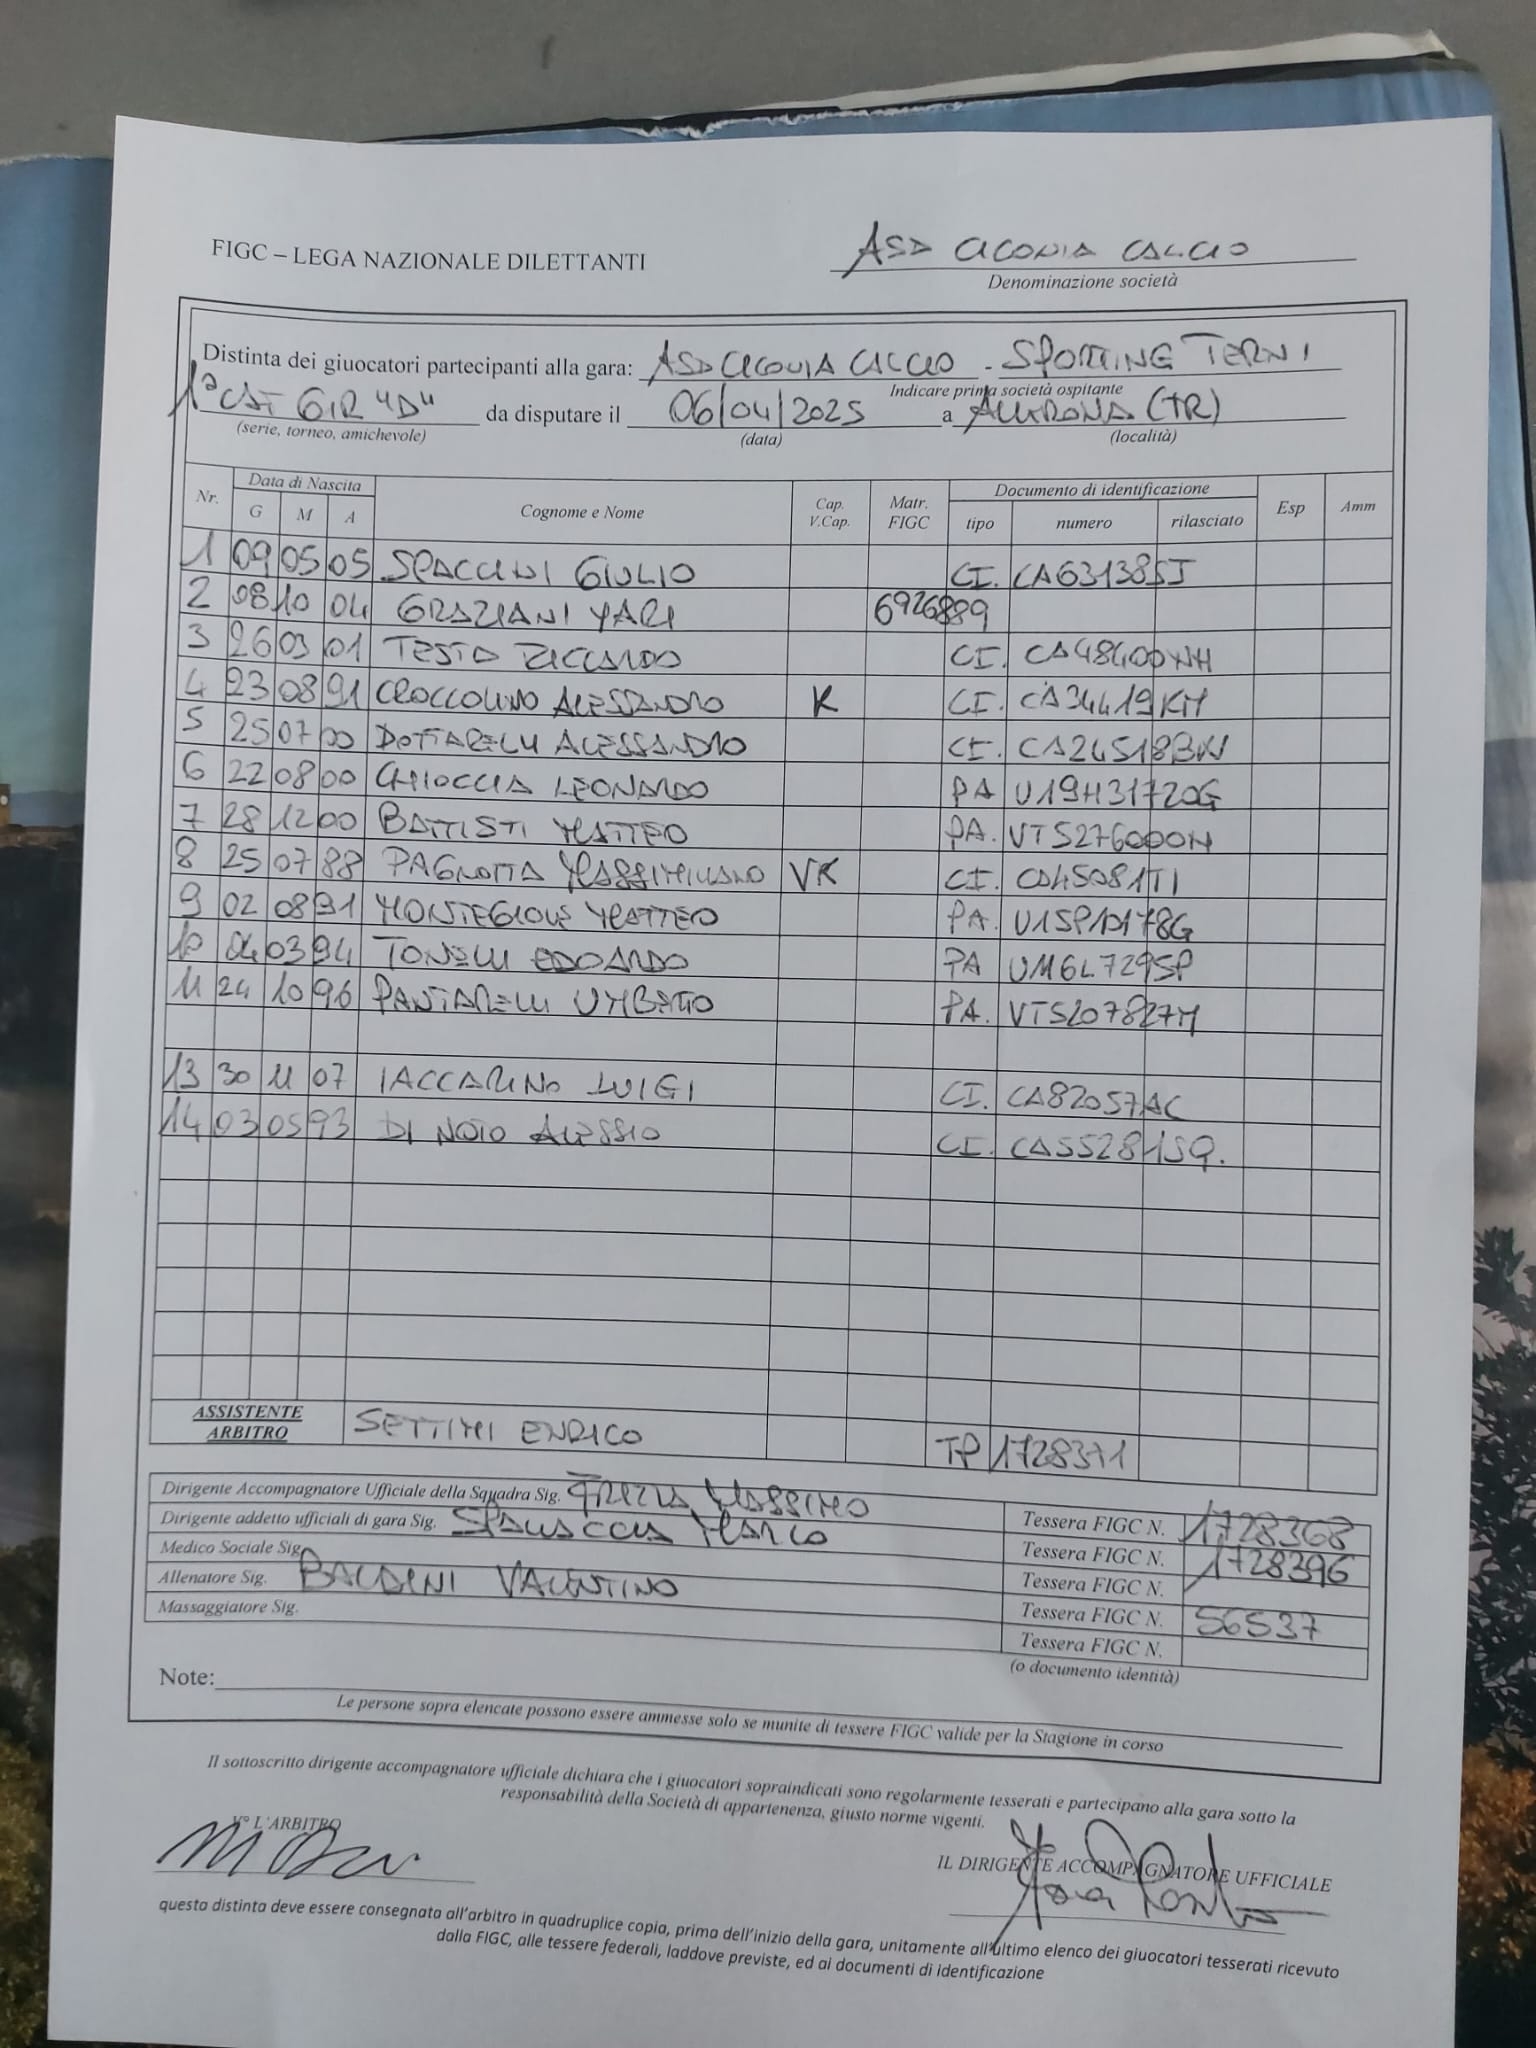 FIGC – LEGA NAZIONALE DILETTANTI
ASD CICONIA CALCIO
Denominazione società
Distinta dei giuocatori partecipanti alla gara: ASD CICONIA CALCIO - SPORTING TERNI
Indicare prima società ospitante
1ª CAT GIR "D" da disputare il 06/04/2025 a ALLERONA (TR)
(serie, torneo, amichevole) (data) (località)
Nr. Data di Nascita Cognome e Nome Cap. V.Cap. Matr. FIGC Documento di identificazione Esp Amm
G M A tipo numero rilasciato
1 09 05 05 SPACCINI GIULIO CI. CA63138SJ
2 08 10 04 GRAZIANI YARI 6926889
3 26 03 01 TESTA RICCARDO CI. CA48400NH
4 23 08 91 CROCCOLINO ALESSANDRO K CI. CA34419KM
5 25 07 00 DOTTARELLI ALESSANDRO CI. CA24518BW
6 22 08 00 CHIOCCIA LEONARDO PA U19H31720G
7 28 12 00 BATTISTI MATTEO PA. VT5276000N
8 25 07 88 PAGNOTTA MASSIMILIANO VK CI. CA45081TI
9 02 08 91 MONTEGIOVE MATTEO PA. U15P10178G
10 04 03 94 TONELLI EDOARDO PA UM6L7295P
11 24 10 96 PANTARELLI UMBERTO PA. VT5207827M
13 30 11 07 IACCARINO LUIGI CI. CA82057AC
14 03 05 93 DI NOIO ALESSIO CI. CA55281SQ.
ASSISTENTE ARBITRO SETTIMI ENRICO TP 1728371
Dirigente Accompagnatore Ufficiale della Squadra Sig. MASSIMO Tessera FIGC N. 1728368
Dirigente addetto ufficiali di gara Sig. MARCO Tessera FIGC N. 1728396
Medico Sociale Sig. Tessera FIGC N.
Allenatore Sig. BALDINI VALENTINO Tessera FIGC N. 56537
Massaggiatore Sig. Tessera FIGC N.
(o documento identità)
Note:
Le persone sopra elencate possono essere ammesse solo se munite di tessere FIGC valide per la Stagione in corso
Il sottoscritto dirigente accompagnatore ufficiale dichiara che i giuocatori sopraindicati sono regolarmente tesserati e partecipano alla gara sotto la
responsabilità della Società di appartenenza, giusto norme vigenti.
V° L'ARBITRO
IL DIRIGENTE ACCOMPAGNATORE UFFICIALE
questa distinta deve essere consegnata all'arbitro in quadruplice copia, prima dell'inizio della gara, unitamente all'ultimo elenco dei giuocatori tesserati ricevuto
dalla FIGC, alle tessere federali, laddove previste, ed ai documenti di identificazione